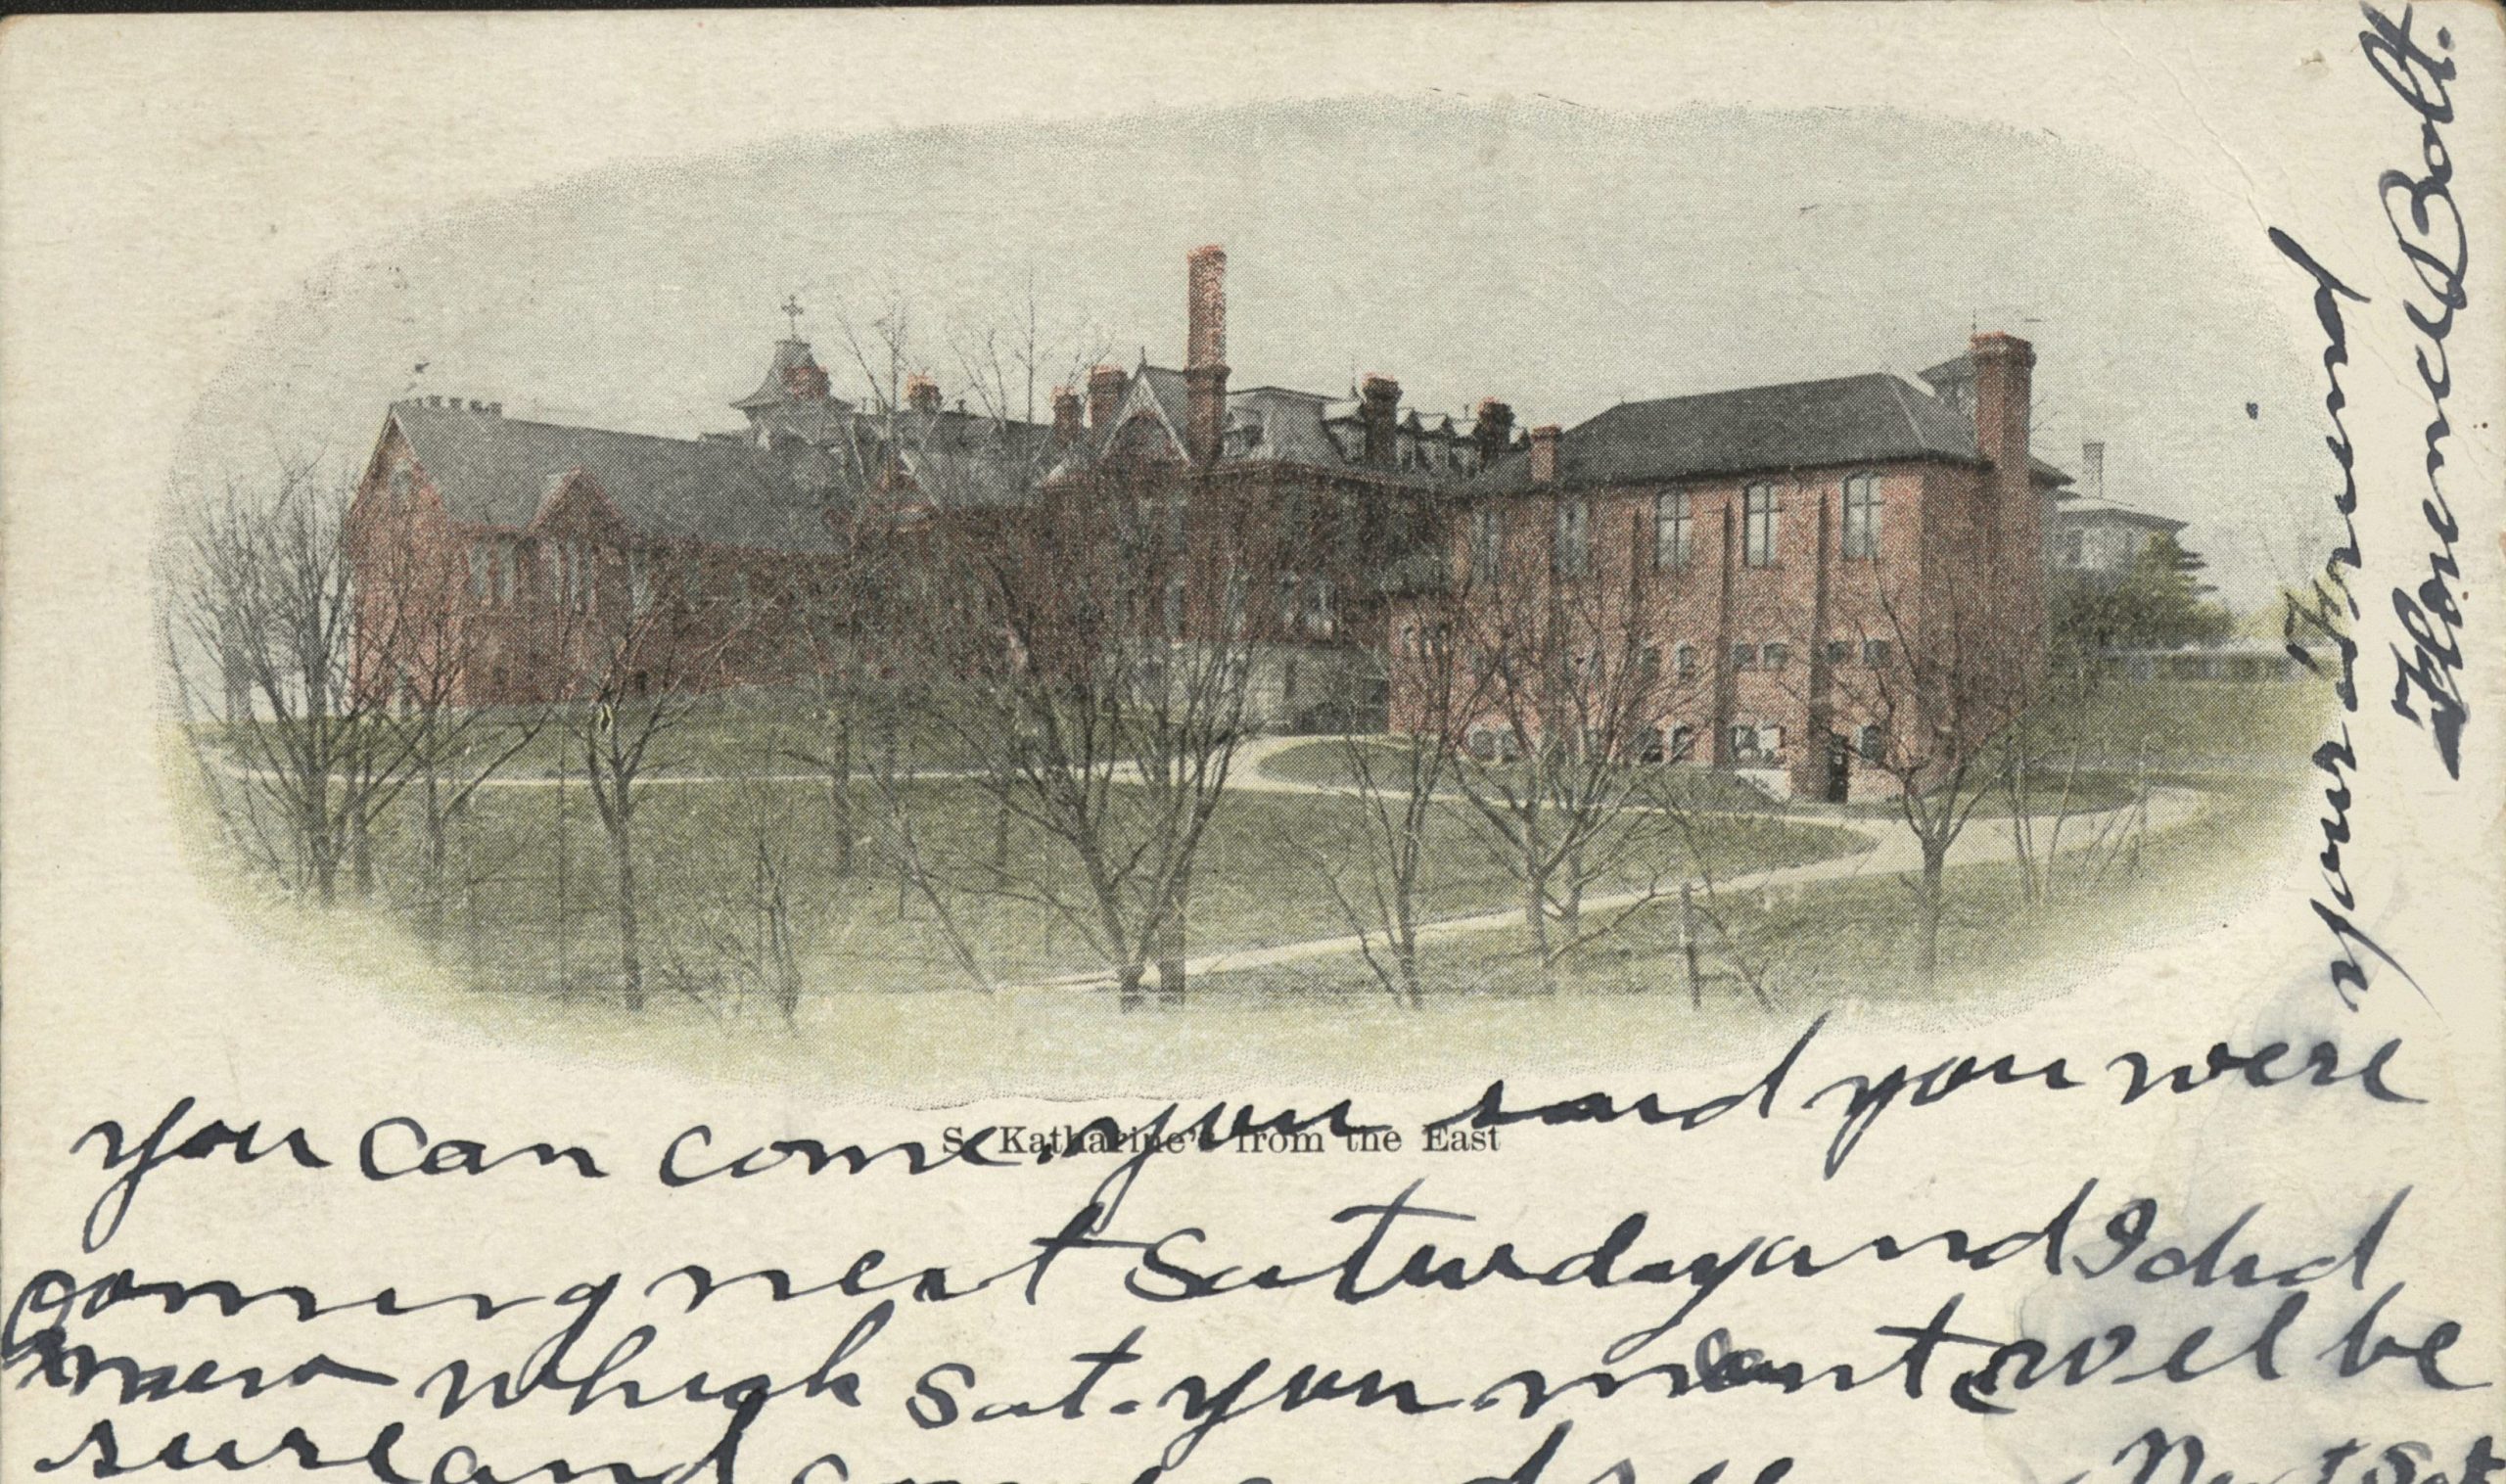 S. Katharine's from the East
you can come. you said you were
coming next Saturday and I did
know which Sat. you meant well be
sure and
Next Sat
your friend
Florence Bolt.